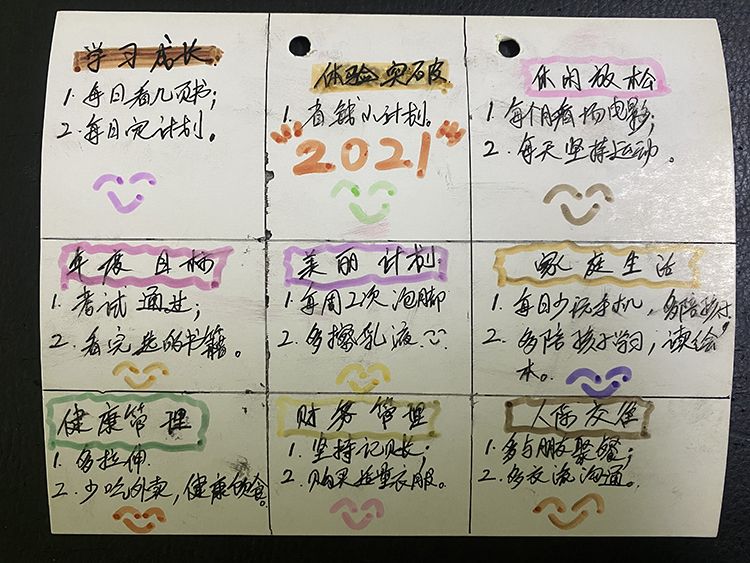 学习成长
1. 每日看几页书;
2. 每日完计划。
体验突破
1. 省钱小计划。
"2021"
休闲放松
1. 每个月看场电影;
2. 每天坚持运动。
年度目标
1. 考试通过;
2. 看完选的书籍。
美丽计划
1. 每周2次泡脚
2. 多擦乳液
家庭生活
1. 每日少玩手机,多陪孩子
2. 多陪孩子学习,读绘
本。
健康管理
1. 多拉伸
2. 少吃外卖,健康饮食。
财务管理
1. 坚持记账;
2. 购买适量衣服。
人际交往
1. 多与朋友聚餐;
2. 多交流沟通。